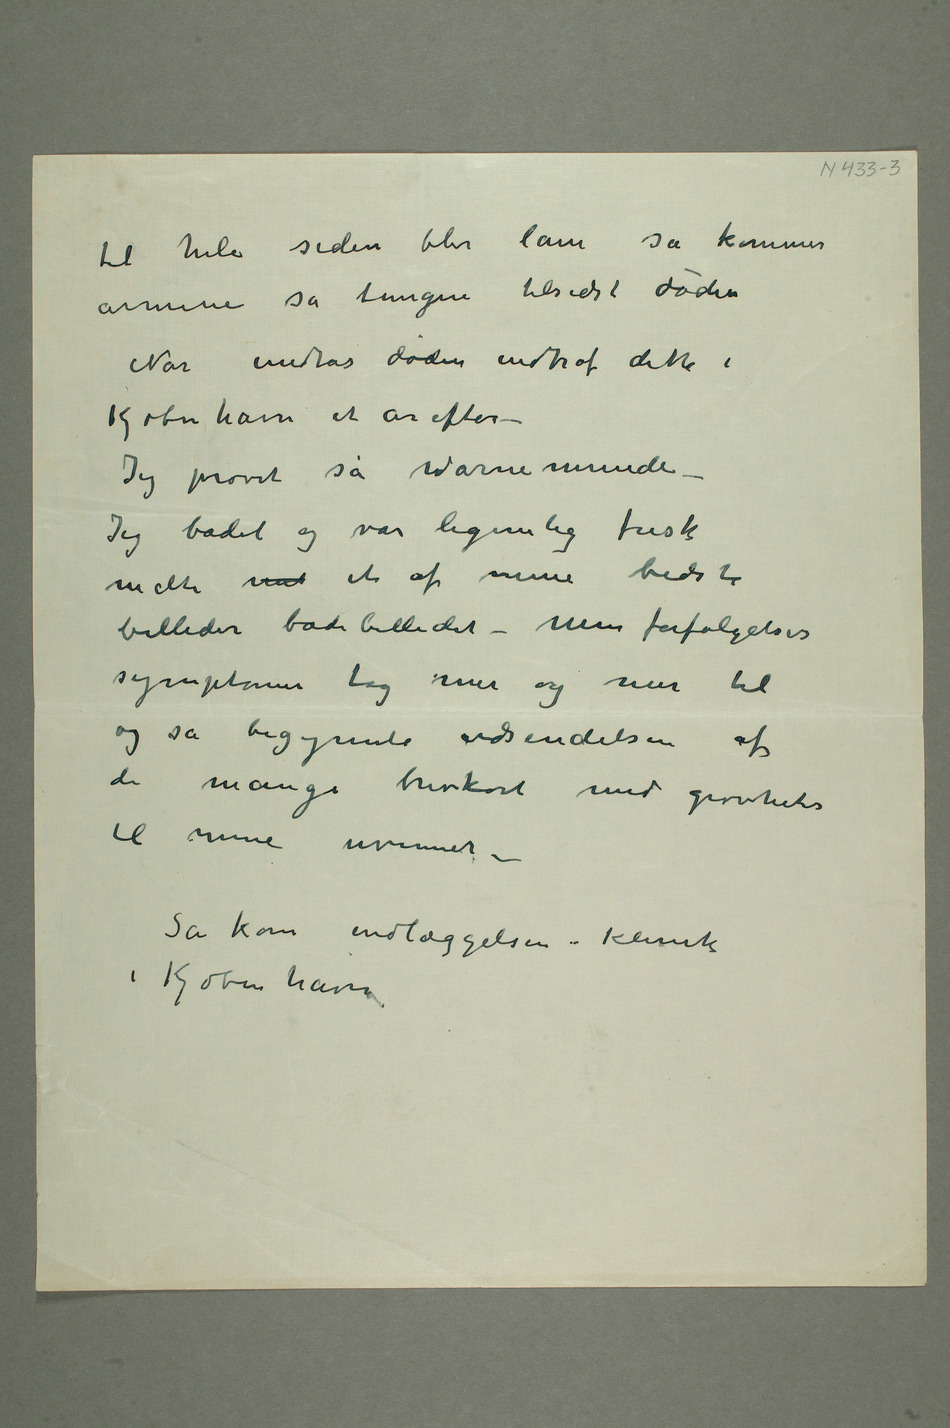 N 433-3
til hele siden blir lam så kommer
armene så tungen tilsidst døden
Når undtas døden indtraf dette i
Kjøbenhavn et år efter –
Jeg prøvet så Warnemunde –
Jeg badet og var legemlig frisk
malte et af mine bedste
billeder badebilledet – Men forfølgelses
symptomer tog mer og mer til
og så begynnte udsendelsen af
de mange brevkort med grovheter
til mine uvenner –
Så kom indlæggelsen – Klinik
i Kjøbenhavn